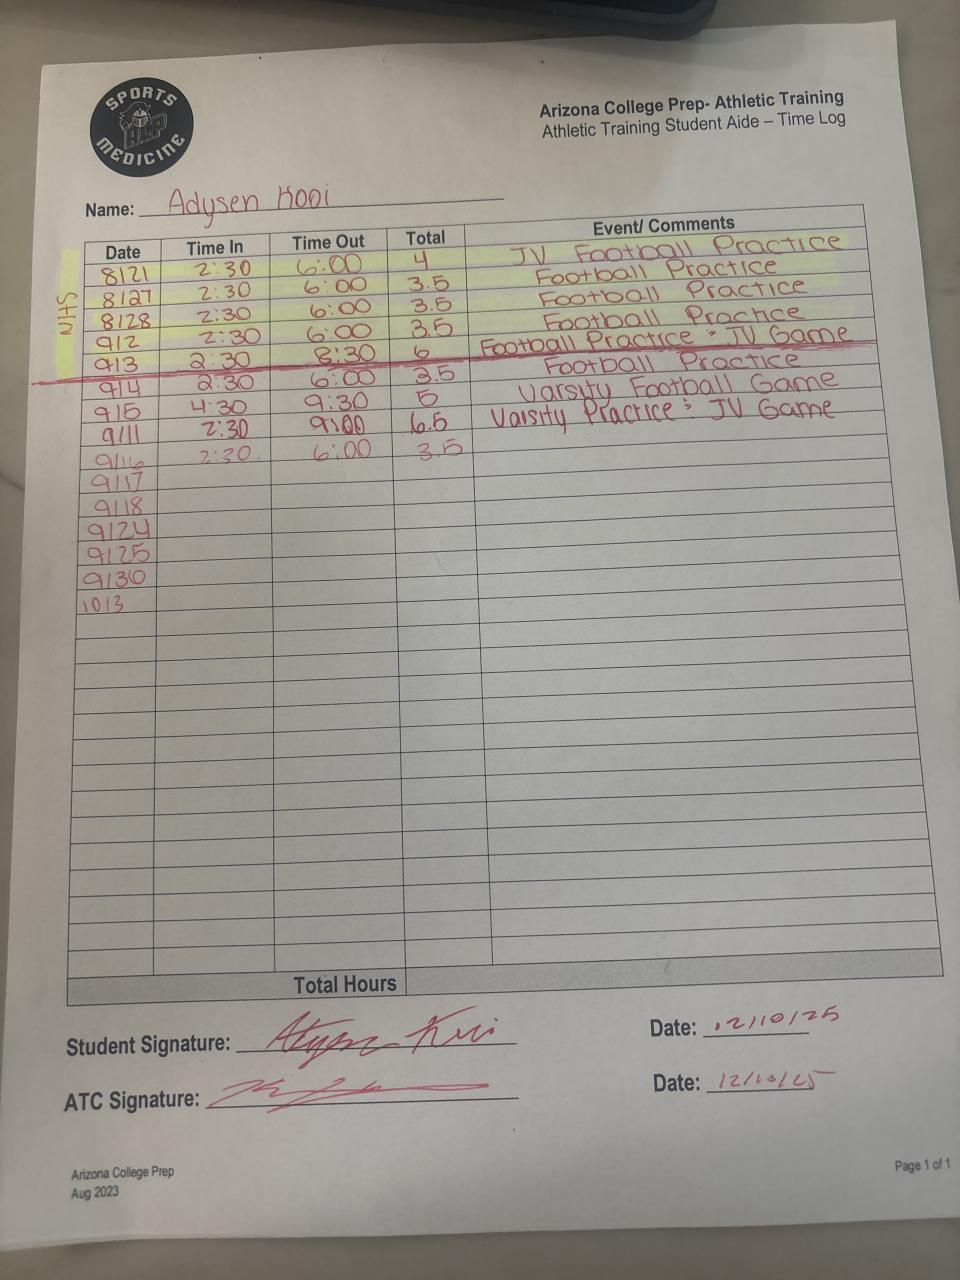 SPORTS
ACP
MEDICINE
Arizona College Prep- Athletic Training
Athletic Training Student Aide – Time Log
Name: Adysen Kooi
Date Time In Time Out Total Event/ Comments
NHS
8/21 2:30 6:00 4 JV Football Practice
8/27 2:30 6:00 3.5 Football Practice
8/28 2:30 6:00 3.5 Football Practice
9/2 2:30 6:00 3.5 Football Practice
9/3 2:30 8:30 6 Football Practice & JV Game
9/4 2:30 6:00 3.5 Football Practice
9/5 4:30 9:30 5 Varsity Football Game
9/11 2:30 9:00 6.5 Varsity Practice & JV Game
9/16 2:30 6:00 3.5
9/17
9/18
9/24
9/25
9/30
10/3
Total Hours
Student Signature: Adysen Kooi Date: 12/10/25
ATC Signature: Date: 12/10/25
Arizona College Prep
Aug 2023
Page 1 of 1